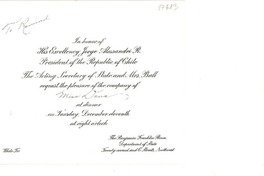 In honor of
His Excellency Jorge Alessandri R.
President of the Republic of Chile
The Acting Secretary of State and Mrs. Ball
request the pleasure of the company of
Miss
at dinner
on Tuesday, December eleventh
at eight o'clock
The Benjamin Franklin Room
Department of State
Twenty-second and C Streets, Northwest
White Tie